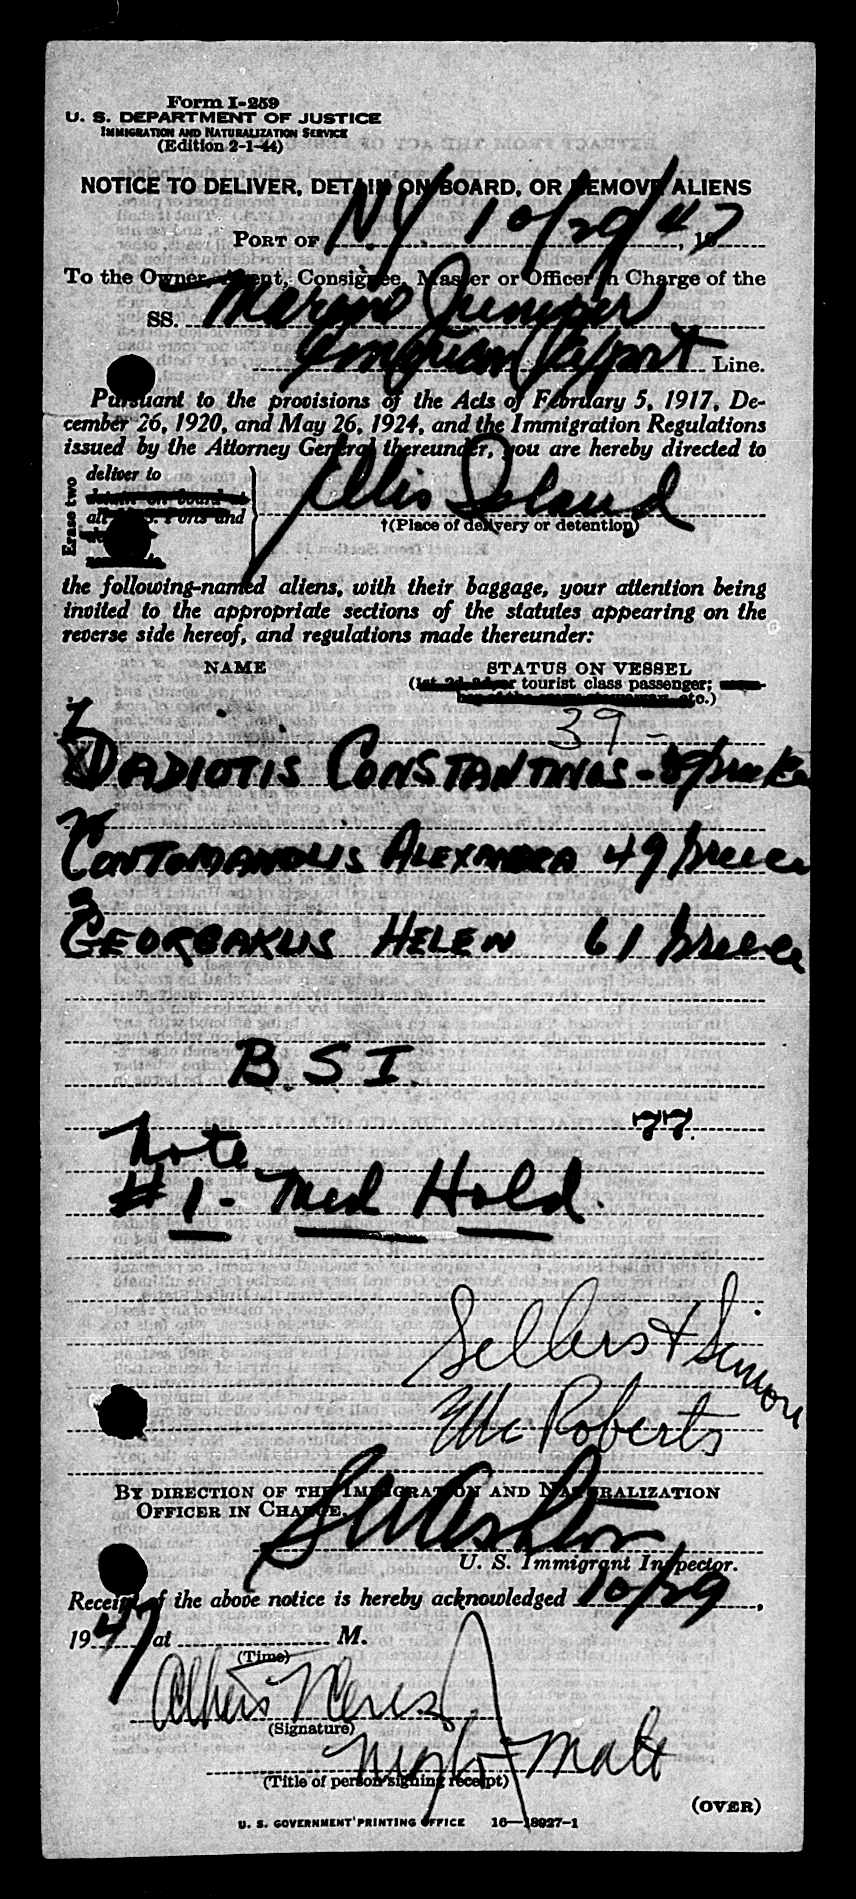 Form I-259
U. S. DEPARTMENT OF JUSTICE
IMMIGRATION AND NATURALIZATION SERVICE
(Edition 2-1-44)
NOTICE TO DELIVER, DETAIN ON BOARD, OR REMOVE ALIENS
PORT OF NY. 10/29/47, 19
To the Owner, Agent, Consignee, Master or Officer in Charge of the
SS. Marine Jumper
American Export Line.
Pursuant to the provisions of the Acts of February 5, 1917, De-
cember 26, 1920, and May 26, 1924, and the Immigration Regulations
issued by the Attorney General thereunder, you are hereby directed to
Erase two
deliver to
detain on board at
Ellis Island
†(Place of delivery or detention)
the following-named aliens, with their baggage, your attention being
invited to the appropriate sections of the statutes appearing on the
reverse side hereof, and regulations made thereunder:
NAME STATUS ON VESSEL
tourist class passenger;
etc.)
39-
1
DADIOTIS CONSTANTINOS - 39 Greece
2
CONTOMANOLIS ALEXANDRA 49 Greece
3
GEORGAKLIS HELEN 61 Greece
B. S. I.
77.
Note
#1 - Med Hold.
Sellers & Simon
McRoberts
BY DIRECTION OF THE IMMIGRATION AND NATURALIZATION
OFFICER IN CHARGE.
U. S. Immigrant Inspector.
Receipt of the above notice is hereby acknowledged 10/29,
1947 at M.
(Time)
(Signature)
(Title of person signing receipt)
(OVER)
U. S. GOVERNMENT PRINTING OFFICE 16—18927-1